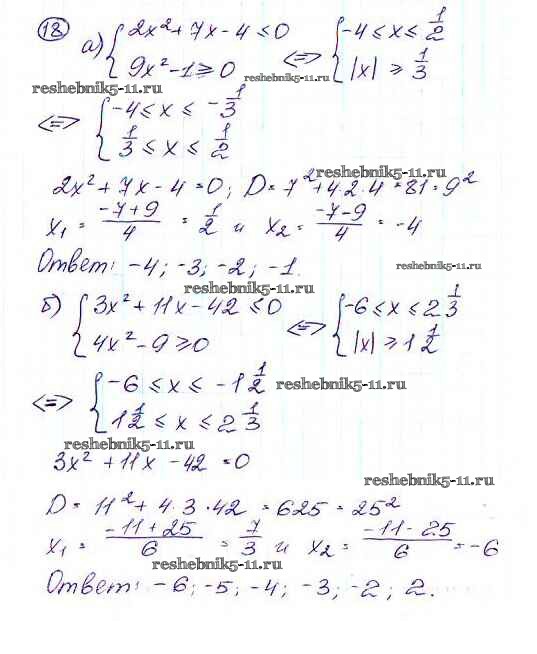 18
а) { 2x² + 7x - 4 ≤ 0 <=> { -4 ≤ x ≤ 1/2
9x² - 1 ≥ 0 |x| ≥ 1/3
reshebnik5-11.ru reshebnik5-11.ru
<=> { -4 ≤ x ≤ -1/3
1/3 ≤ x ≤ 1/2
reshebnik5-11.ru
2x² + 7x - 4 = 0; D = 7² + 4·2·4 = 81 = 9²
x₁ = (-7+9)/4 = 1/2 и x₂ = (-7-9)/4 = -4
reshebnik5-11.ru
Ответ: -4; -3; -2; -1. reshebnik5-11.ru
reshebnik5-11.ru
б) { 3x² + 11x - 42 ≤ 0 <=> { -6 ≤ x ≤ 2 1/3
4x² - 9 ≥ 0 |x| ≥ 1 1/2
<=> { -6 ≤ x ≤ -1 1/2 reshebnik5-11.ru
1 1/2 ≤ x ≤ 2 1/3
reshebnik5-11.ru
3x² + 11x - 42 = 0
reshebnik5-11.ru
D = 11² + 4·3·42 = 625 = 25²
x₁ = (-11+25)/6 = 7/3 и x₂ = (-11-25)/6 = -6
reshebnik5-11.ru
Ответ: -6; -5; -4; -3; -2; 2.